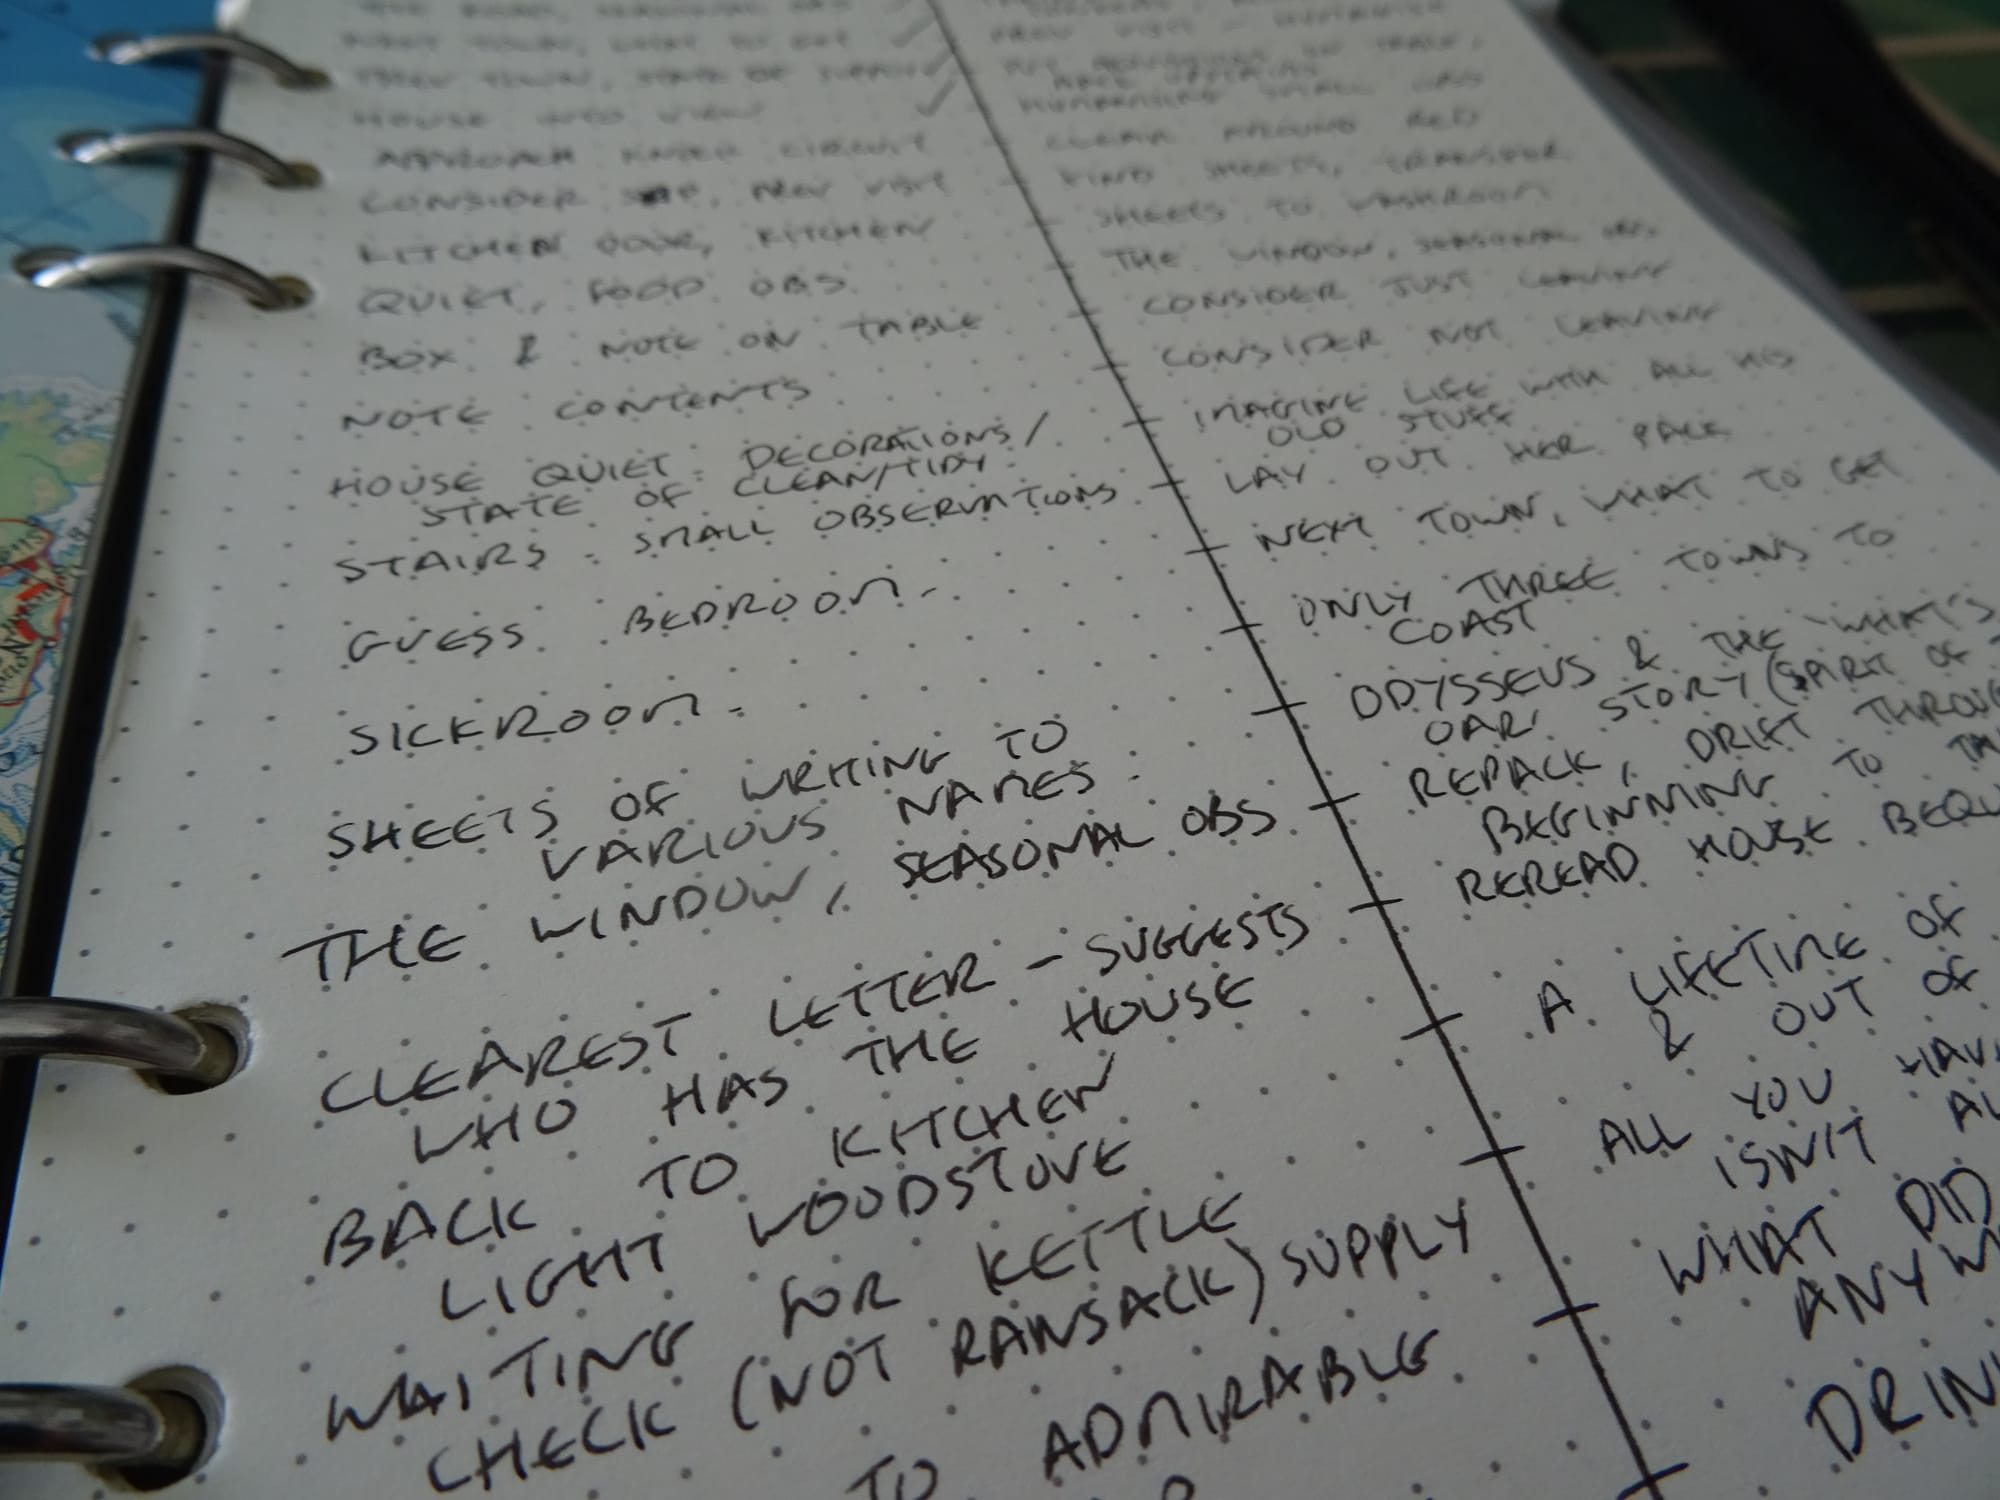 NEXT TOWN, WHAT TO GET
HOUSE INTO VIEW
APPROACH UNDER CIRCUIT
CONSIDER PREV VISIT
KITCHEN DOOR, KITCHEN
QUIET, FOOD OBS.
BOX & NOTE ON TABLE
NOTE CONTENTS
HOUSE QUIET. DECORATIONS/
STATE OF CLEAN/TIDY.
STAIRS. SMALL OBSERVATIONS
GUESS BEDROOM.
SICKROOM.
SHEETS OF WRITING TO
VARIOUS NAMES.
THE WINDOW, SEASONAL OBS
CLEAREST LETTER - SUGGESTS
WHO HAS THE HOUSE
BACK TO KITCHEN
LIGHT WOODSTOVE
WAITING FOR KETTLE
CHECK (NOT RANSACK) SUPPLY
TO ADMIRABLE
PREV VISIT -
HUMANKIND SMALL OBS
CLEAR AROUND BED
FIND SHEETS, TRANSFER
SHEETS TO WASHROOM
THE WINDOW, SEASONAL OBS.
CONSIDER JUST LEAVING
CONSIDER NOT LEAVING
IMAGINE LIFE WITH ALL HIS
OLD STUFF
LAY OUT HER PACK
NEXT TOWN, WHAT TO GET
ONLY THREE TOWNS TO
COAST
ODYSSEUS & THE 'WHAT'S
OAR' STORY (SPIRIT OF
REPACK, DRIFT THROUG
BEGINNING TO
REREAD HOUSE BEQU
A LIFETIME OF
& OUT OF
ALL YOU HAV
ISN'T AL
WHAT DID
ANYW
DRIN